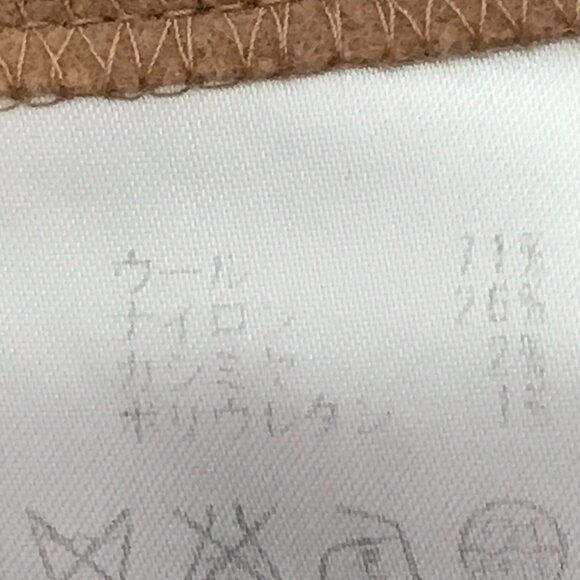 ウール 71%
ナイロン 26%
カシミヤ 2%
ポリウレタン 1%